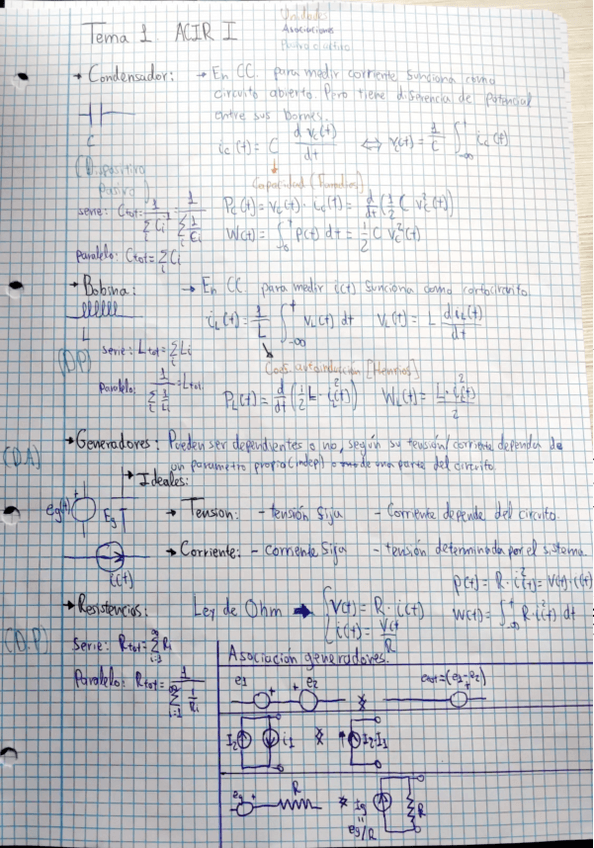 Unidades
Asociaciones
Tema 1. ACIR I
→ Condensador: → En CC. para medir corriente funciona como
circuito abierto. Pero tiene diferencia de potencial
entre sus bornes.
C
(Dispositivo
Pasivo)
i_c(t) = C d v_c(t)/dt ⇔ V_c(t) = 1/C ∫_{-∞}^{t} i_c(t)
Capacidad (Faradios)
serie: C_tot = 1/Σ C_i^{-1} = 1/Σ_i 1/C_i
P_c(t) = v_c(t) · i_c(t) = d/dt (1/2 C v_c²(t))
W(t) = ∫_{t_0}^{t} P(t) dt = 1/2 C v_c²(t)
paralelo: C_tot = Σ_i C_i
→ Bobina: → En CC para medir i(t) funciona como cortocircuito
L
i_L(t) = 1/L ∫_{-∞}^{t} v_L(t) dt V_L(t) = L d i_L(t)/dt
(DP)
serie: L_tot = Σ_i L_i
Coef. autoinducción [Henrios]
Paralelo: 1/Σ_i 1/L_i = L_tot
P_L(t) = d/dt (1/2 L · i_L²(t)) W_L(t) = L · i_L²(t)/2
→ Generadores: Pueden ser dependientes o no, según su tensión/corriente dependa de
(DA)
un parametro propio (indep) o de una parte del circuito.
→ Ideales:
eg(t) Eg
→ Tension: - tensión fija - Corriente depende del circuito.
→ Corriente: - corriente fija - tensión determinada por el sistema.
i(t)
p(t) = R · i²(t) = V(t) · i(t)
→ Resistencias: Ley de Ohm → { V(t) = R · i(t)
i(t) = V(t)/R
W(t) = ∫_{-∞}^{t} R · i²(t) dt
(D.P)
Serie: R_tot = Σ_{i=1}^{∞} R_i
Paralelo: R_tot = 1/Σ_{i=1}^{∞} 1/R_i
Asociación generadores.
e1 + + e2 ※ e_tot = (e1-e2) +
I2 i1 ※ I2-I1
eg + R ※ Ig = eg/R R